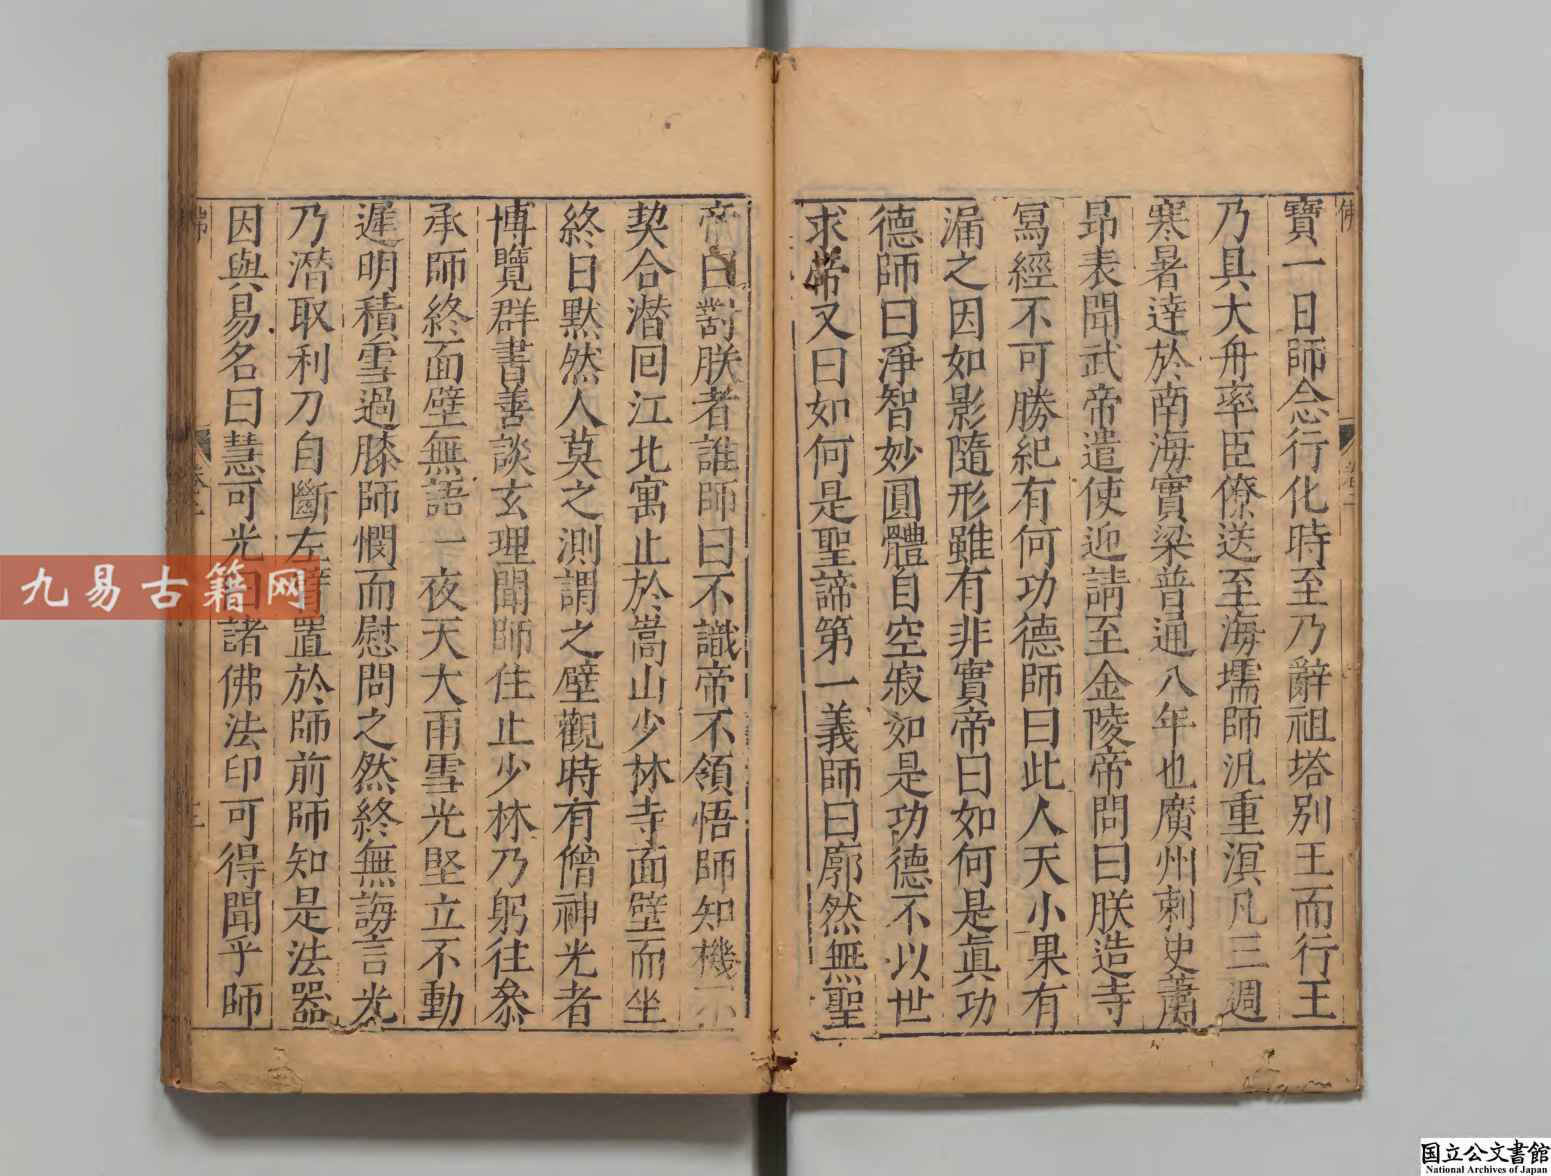 佛
寶一日師念行化時至乃辭祖塔别王而行王
乃具大舟率臣僚送至海壖師汎重溟凡三週
寒暑達於南海實梁普通八年也廣州刺史蕭
昻表聞武帝遣使迎請至金陵帝問曰朕造寺
寫經不可勝紀有何功德師曰此人天小果有
漏之因如影隨形雖有非實帝曰如何是眞功
德師曰淨智妙圓體自空寂如是功德不以世
求帝又曰如何是聖諦第一義師曰廓然無聖
帝曰對朕者誰師曰不識帝不領悟師知機不
契合潜回江北寓止於嵩山少林寺面壁而坐
終日黙然人莫之測謂之壁觀時有僧神光者
博覽群書善談玄理聞師住止少林乃躬往叅
承師終面壁無語一夜天大雨雪光堅立不動
遲明積雪過膝師憫而慰問之然終無誨言光
乃潜取利刀自斷左臂置於師前師知是法器
因與易名曰慧可光曰諸佛法印可得聞乎師
九易古籍网
国立公文書館
National Archives of Japan